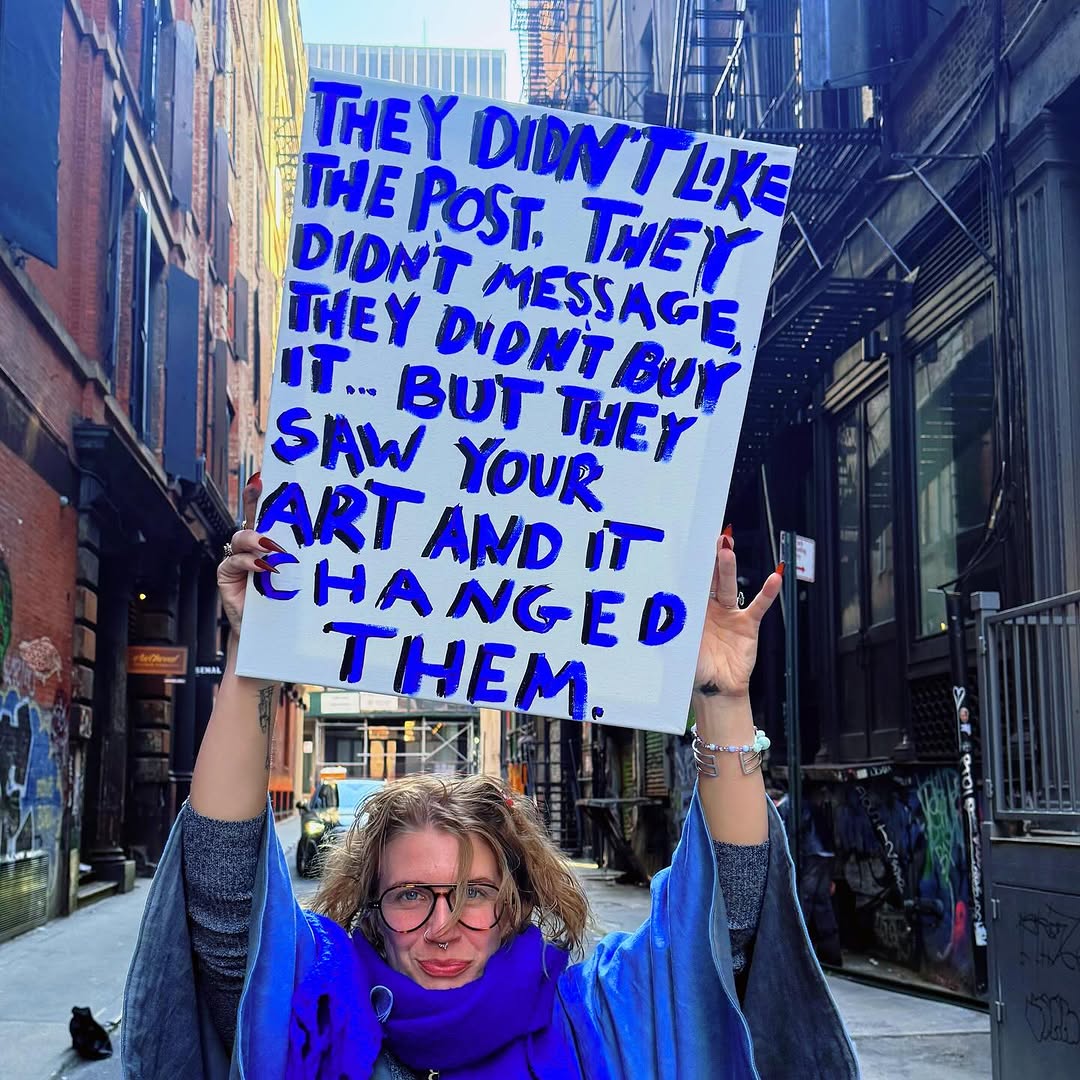 THEY DIDN'T LIKE
THE POST. THEY
DIDN'T MESSAGE,
THEY DIDN'T BUY
IT... BUT THEY
SAW YOUR
ART AND IT
CHANGED
THEM.